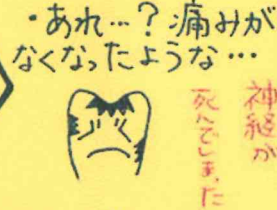 ・あれ…？痛みが
なくなったような…
神経が
死んでしまった